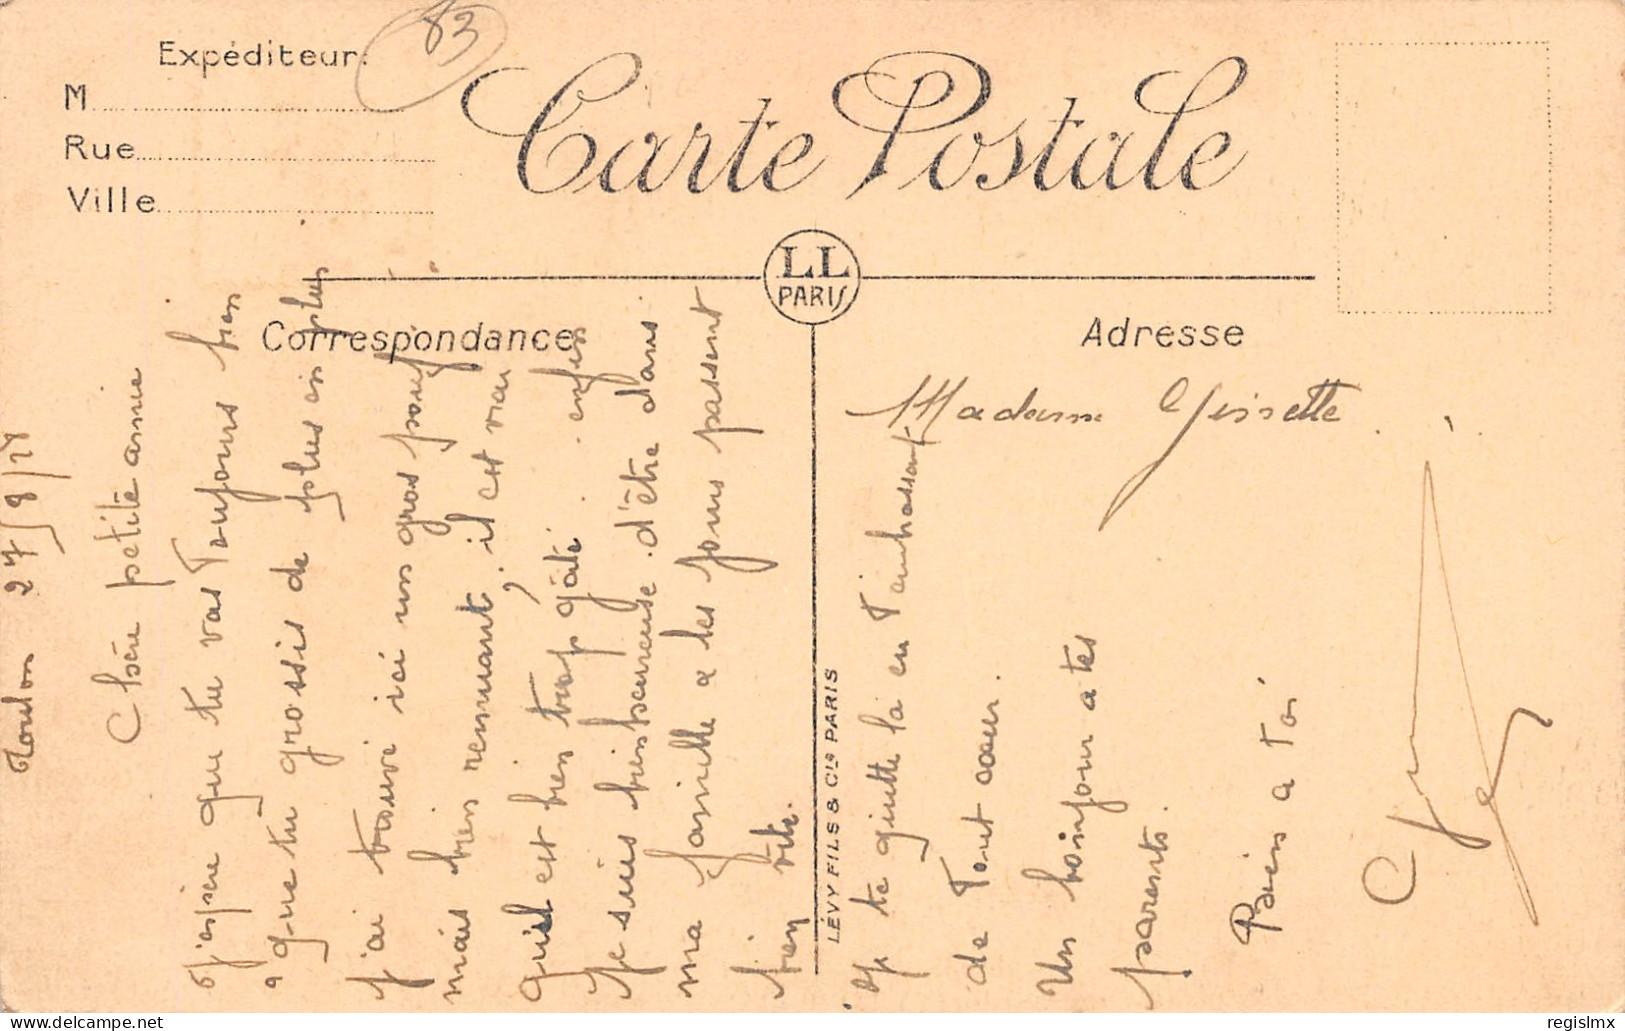 83
Expéditeur:
M
Rue
Ville
Carte Postale
LL
PARIS
Correspondance
Adresse
Toulon 27/8/24
Chère petite amie
J'espère que tu vas Toujours bien
a que tu grossis de plus en plus
j'ai trouvé ici un gros pouf
mais bien remuant, il est vrai
qu'il est bien trop gâté. enfin
Je suis bien heureuse d'être dans
ma famille a les jours passent
bien vite.
LÉVY FILS & Cie PARIS
Madame Ginette
Je te quitte la en T'embrassant
de Tout cœur.
Un bonjour a tes
parents.
Bien a toi
delcampe.net
regislmx